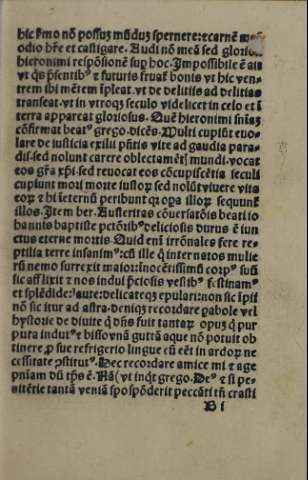 hic prīo nō possuz mūdus spernere: et carnē me
odio hr̄e et castigare. Audi nō meā sed gloriosi
hieronimi respōsionē sup hoc. Impossibile ē ait
vt qs p̄sentibꝰ et futuris fruaꝉ bonis vt hic ven-
trem ibi mētem īpleat. vt de delitiis ad delitias
transeat. vt in vtroqꝫ seculo videlicet in celo et ī
terra appareat gloriosus. Quē hieronimi sniaz
cōfirmat beatꝰ grego. dicēs. Multi cupiūt euo-
lare de iusticia exilii pn̄tis vite ad gaudia para-
disi. sed nolunt carere oblectamētꝭ mundi. vocat
eos gr̄a xp̄i. sed reuocat eos cōcupiscētia seculi
cupiunt mori morte iustoꝝ sed nolūt viuere vita
eoꝝ et hi īeternū peribunt qꝛ opa illoꝝ sequunt̃
illos. Item ber. Austeritas cōuersatōis beati io
hannis baptiste pctōribꝰ deliciosis durus ē iun-
ctus eterne mortis. Quid eni irrōnales fere re-
ptilia terre insanimꝰ: cū ille q̄ internatos mulie
rū nemo surrexit maior: inocētissimū corpꝰ suū
sic afflixit et nos indui p̄ciosis vestibꝰ festinamꝰ
et splēdide: laute: delicateqꝫ epulari: non sic īpii
nō sic itur ad astra. deniqꝫ recordare pabole vel
hystorie de diuite q̄ dn̄s fuit tantaꝝ opuꝫ q̄ pur
pura induit̃ et bisso vnā guttā aque nō potuit ob
tinere ꝓ sue refrigerio lingue cū eēt in ardoꝝ ne
cessitate ꝯstitutꝰ. Hec recordare amice mi et age
pn̄iam dū tp̄s ē. Nā (vt inqt grego. Deꝰ et si pe-
nitētie tantā veniā spospōderit peccāti tn̄ crasti
B i